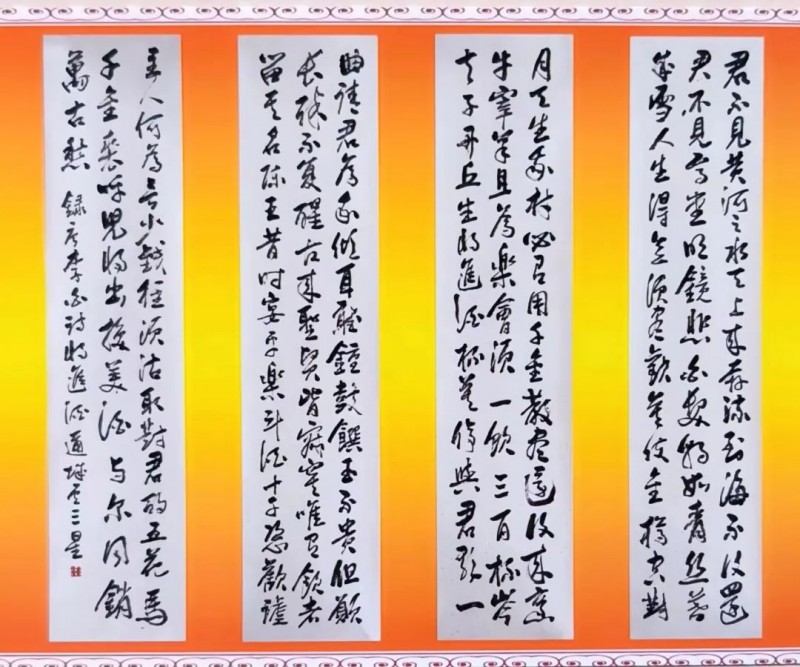 君不見黄河之水天上来奔流到海不復迴
君不見高堂明鏡悲白髮朝如青絲暮
成雪人生得意須盡歡莫使金樽空對
月天生我材必有用千金散盡還復来烹
牛宰羊且為樂會須一飲三百杯岑
夫子丹丘生將進酒杯莫停與君歌一
曲請君為我傾耳聽鐘鼓饌玉不貴但願
長醉不復醒古来聖賢皆寂寞唯有飲者
留其名陳王昔時宴平樂斗酒十千恣歡謔
主人何為言少錢徑須沽取對君酌五花馬
千金裘呼兒將出換美酒与尔同銷
萬古愁 録唐李白詩將進酒